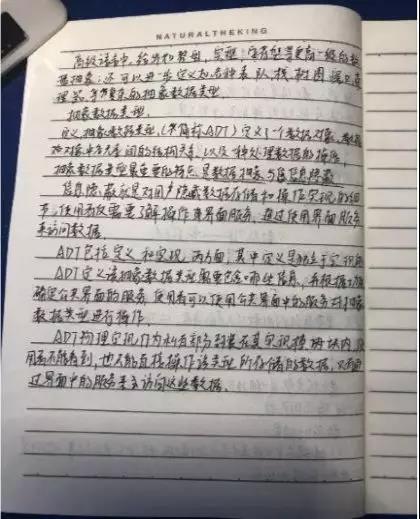 NATURALTHEKING
高级语言中，结构和类型，实型：字符型等更高一级的数
据抽象；还可以进一步定义如各种表、队、栈、树、图、窗口、管
理器等复杂的抽象数据类型
抽象数据类型.
定义：抽象数据类型(简称ADT)定义了一个数据对象、数据
对象中各元素间的结构关系，以及一种处理数据的操作，
抽象数据类型最重要的特点是数据抽象与信息隐蔽
信息隐蔽就是对用户隐藏数据存储和操作实现的细
节，使用者仅需要了解操作来界面服务，通过使用界面服务
来访问数据
ADT包括定义和实现，两方面，其中定义是独立于实现的
ADT定义该抽象数据类型需要包含哪些信息，并根据功能
确定公共界面的服务，使用者可以使用公共界面中的服务对抽象
数据类型进行操作.
ADT物理实现作为私有部分封装在其实现模块内，使
用者不能看到，也不能直接操作该类型所存储的数据，只有通
过界面中的服务来访问这些数据.